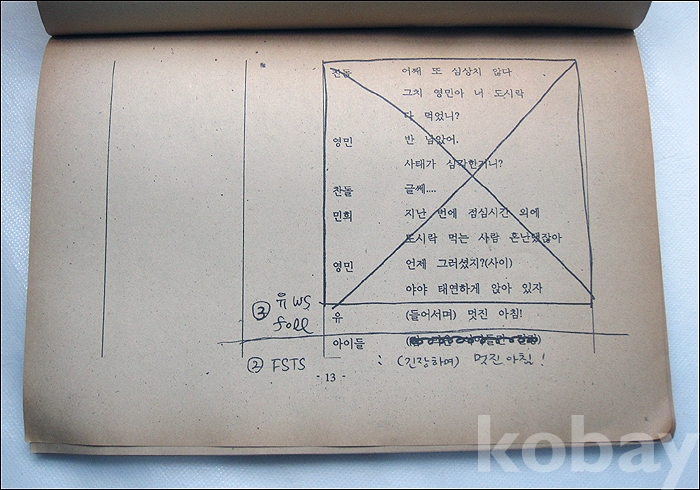 찬돌 어째 또 심상치 않다
그치 영민아 너 도시락
다 먹었니?
영민 반 남았어.
사태가 심각한거니?
찬돌 글쎄....
민희 지난 번에 점심시간 외에
도시락 먹는 사람 혼난댔잖아
영민 언제 그러셨지?(사이)
야야 태연하게 앉아 있자
③ 유 WS
foll
유 (들어서며) 멋진 아침!
아이들
② FSTS : (긴장하며) 멋진 아침!
- 13 -
kobay